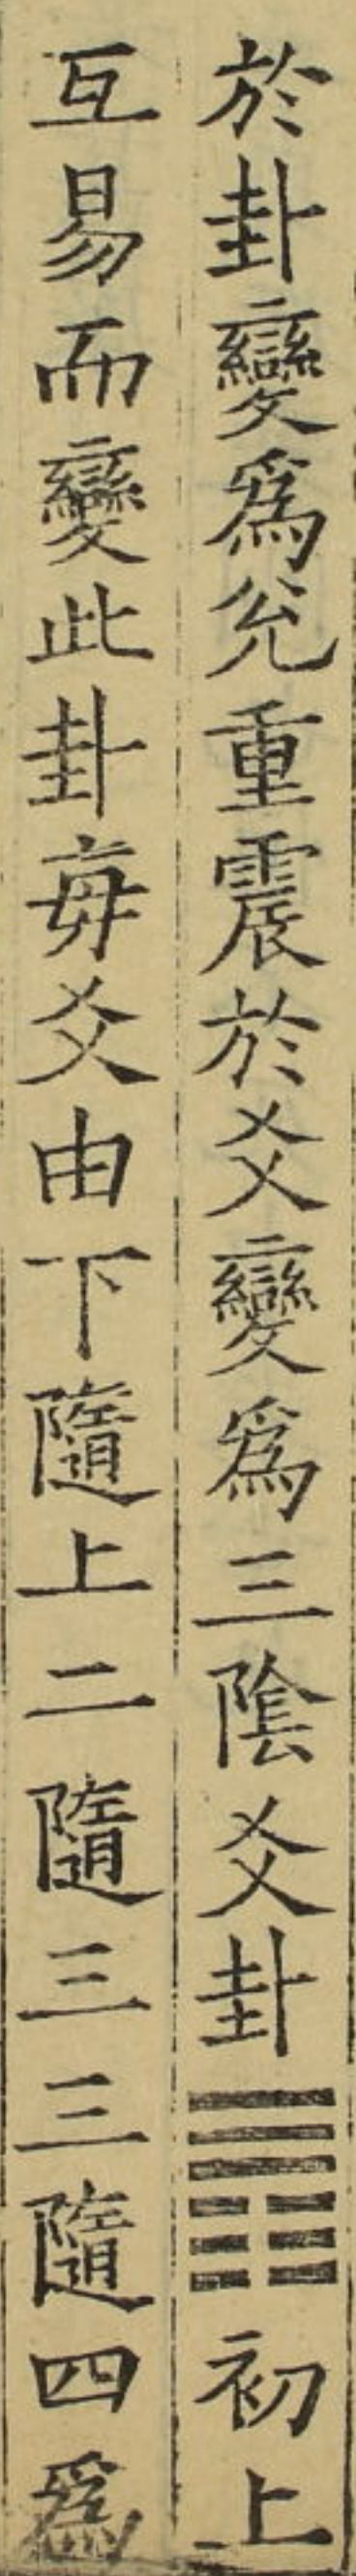 於卦變爲兊重震於爻變爲三陰爻卦䷋初上
互易而變此卦每爻由下隨上二隨三三隨四爲